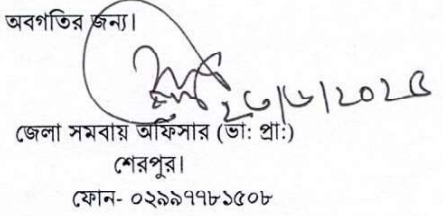 অবগতির জন্য।
জেলা সমবায় অফিসার (ভা: প্রা:)
শেরপুর।
ফোন- ০২৯৯৭৭৮১৫০৮